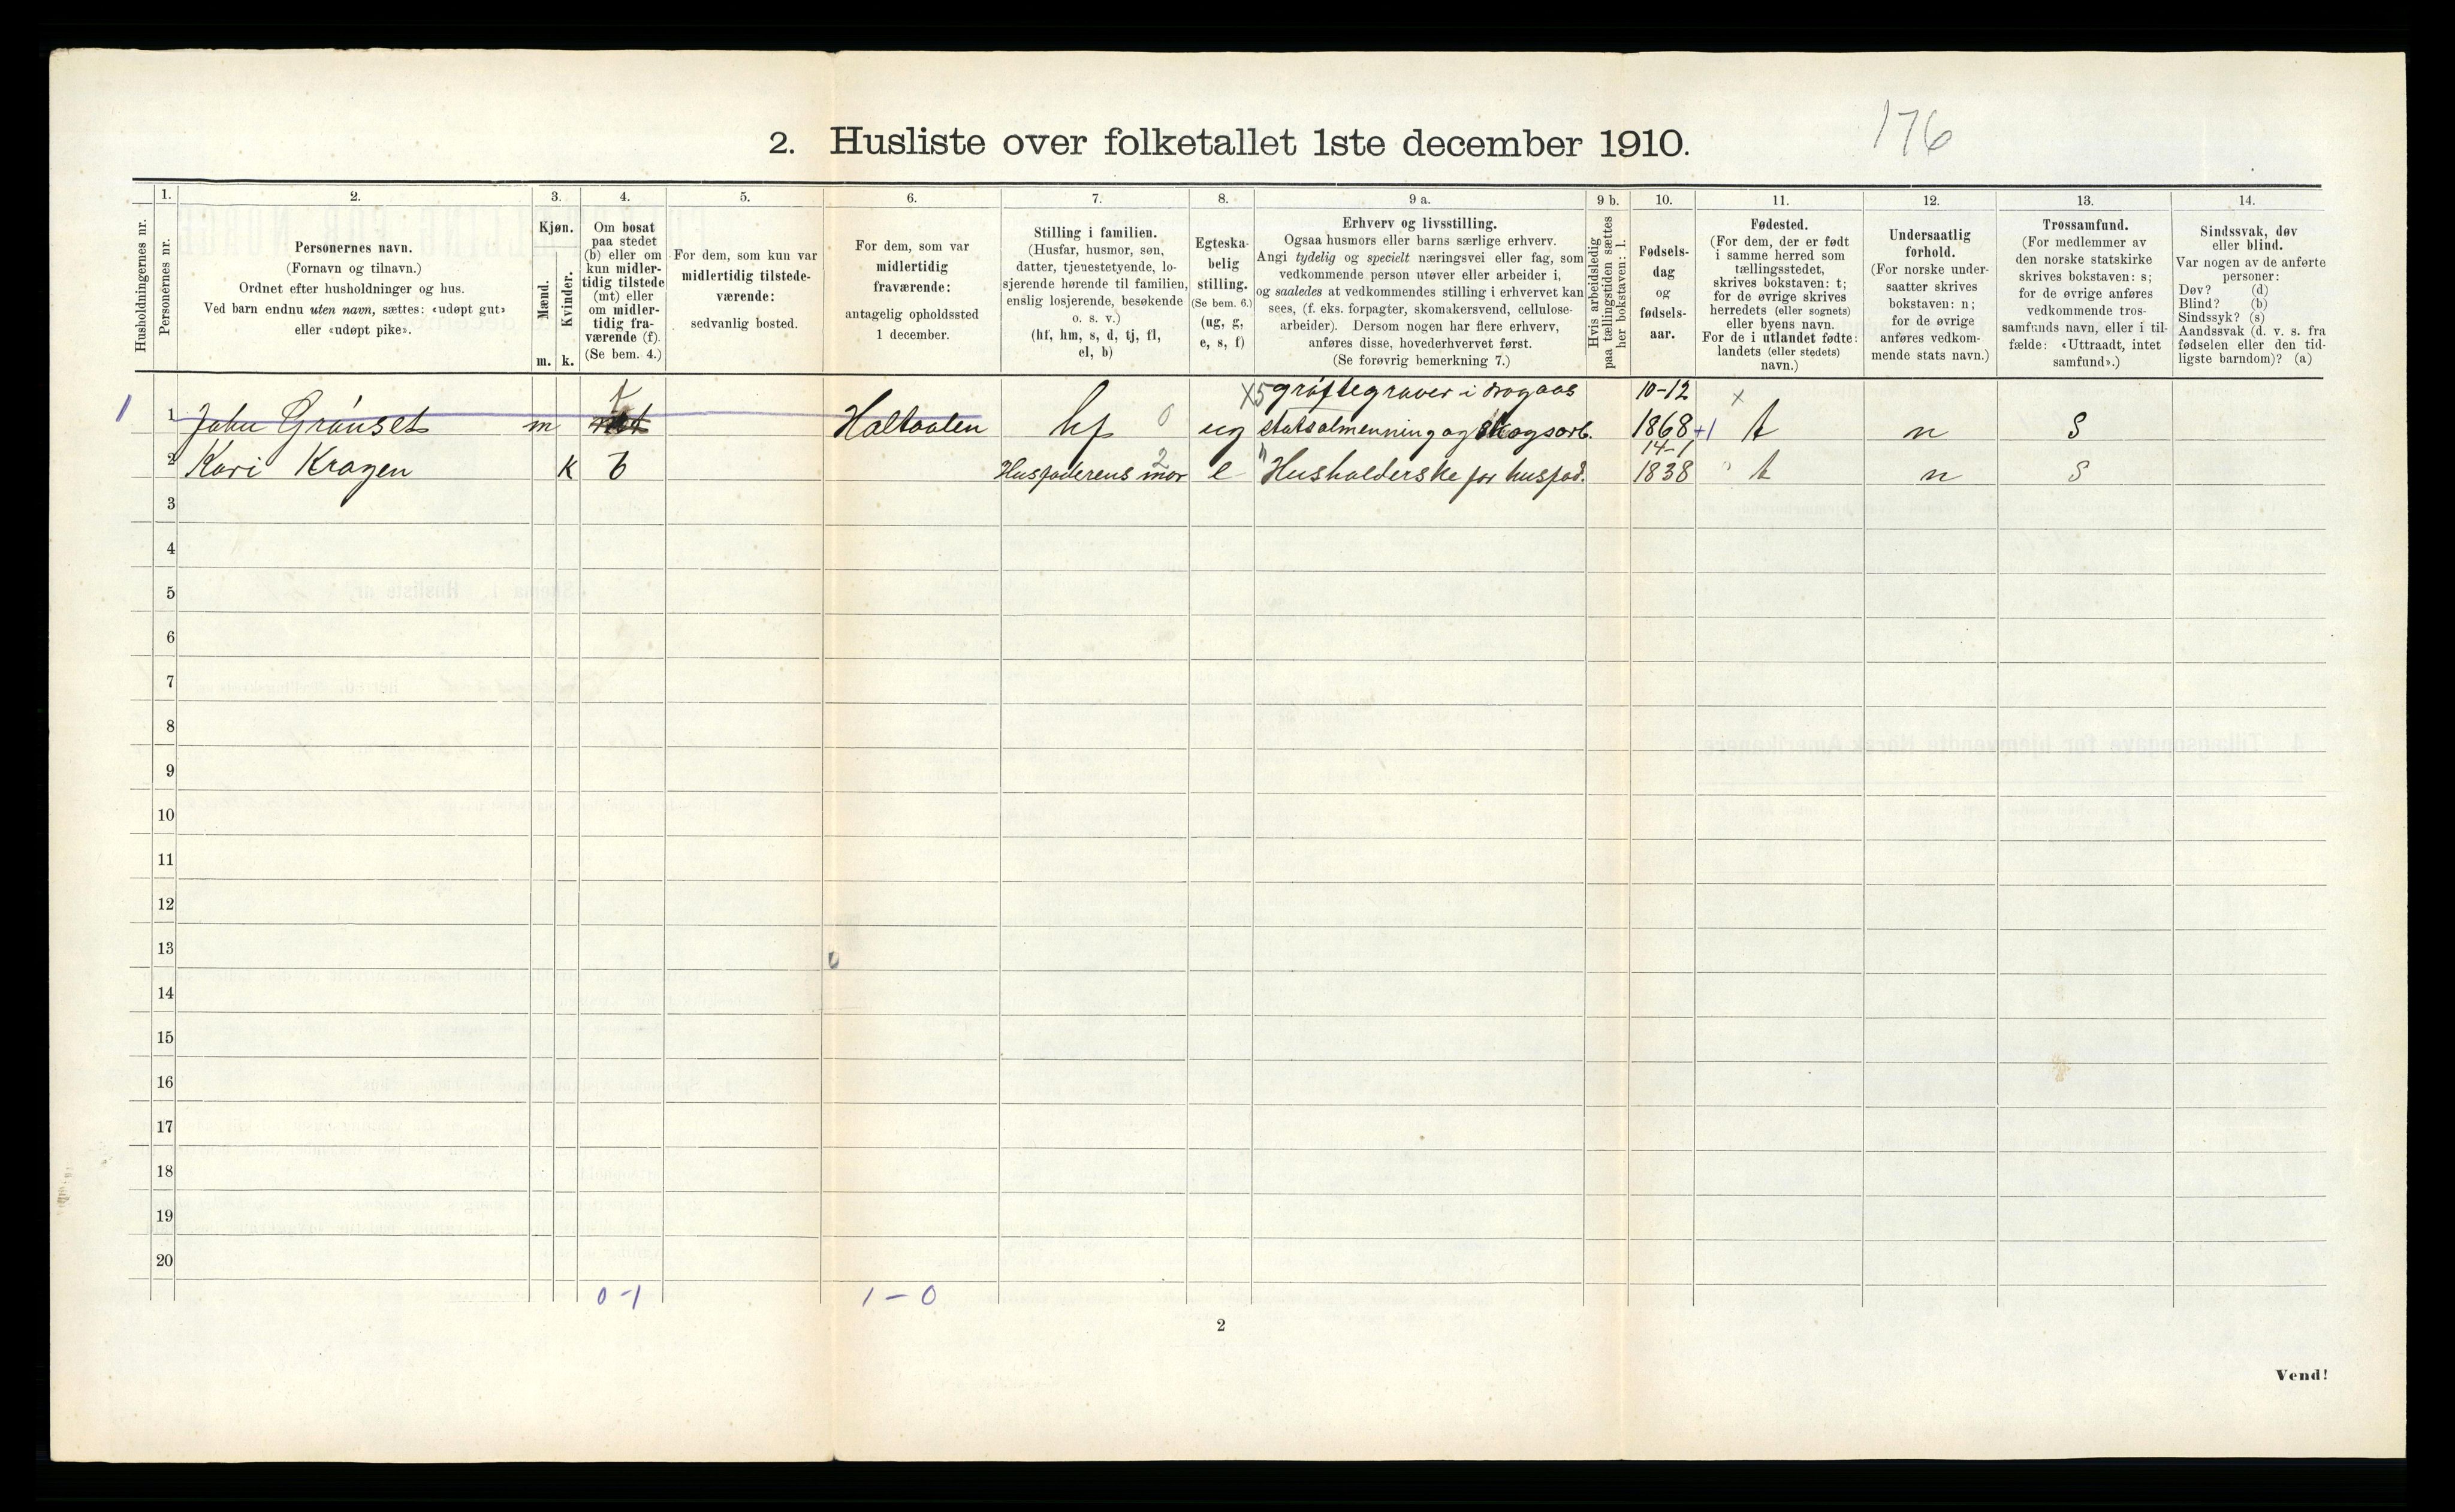 176
2. Husliste over folketallet 1ste december 1910.
Husholdningernes nr.
1.
Personernes nr.
2.
Personernes navn.
(Fornavn og tilnavn.)
Ordnet efter husholdninger og hus.
Ved barn endnu uten navn, sættes: «udøpt gut»
eller «udøpt pike».
3.
Kjøn.
Mænd.
Kvinder.
m. k.
4.
Om bosat
paa stedet
(b) eller om
kun midler-
tidig tilstede
(mt) eller
om midler-
tidig fra-
værende (f).
(Se bem. 4.)
5.
For dem, som kun var
midlertidig tilstede-
værende:
sedvanlig bosted.
6.
For dem, som var
midlertidig
fraværende:
antagelig opholdssted
1 december.
7.
Stilling i familien.
(Husfar, husmor, søn,
datter, tjenestetyende, lo-
sjerende hørende til familien,
enslig losjerende, besøkende
o. s. v.)
(hf, hm, s, d, tj, fl,
el, b)
8.
Egteska-
belig
stilling.
(Se bem. 6.)
(ug, g,
e, s, f)
9 a.
Erhverv og livsstilling.
Ogsaa husmors eller barns særlige erhverv.
Angi tydelig og specielt næringsvei eller fag, som
vedkommende person utøver eller arbeider i,
og saaledes at vedkommendes stilling i erhvervet kan
sees, (f. eks. forpagter, skomakersvend, cellulose-
arbeider). Dersom nogen har flere erhverv,
anføres disse, hovederhvervet først.
(Se forøvrig bemerkning 7.)
9 b.
Hvis arbeidsledig
paa tællingstiden sættes
her bokstaven: l.
10.
Fødsels-
dag
og
fødsels-
aar.
11.
Fødested.
(For dem, der er født
i samme herred som
tællingsstedet,
skrives bokstaven: t;
for de øvrige skrives
herredets (eller sognets)
eller byens navn.
For de i utlandet fødte:
landets (eller stedets)
navn.)
12.
Undersaatlig
forhold.
(For norske under-
saatter skrives
bokstaven: n;
for de øvrige
anføres vedkom-
mende stats navn.)
13.
Trossamfund.
(For medlemmer av
den norske statskirke
skrives bokstaven: s;
for de øvrige anføres
vedkommende tros-
samfunds navn, eller i til-
fælde: «Uttraadt, intet
samfund».)
14.
Sindssvak, døv
eller blind.
Var nogen av de anførte
personer:
Døv? (d)
Blind? (b)
Sindssyk? (s)
Aandssvak (d. v. s. fra
fødselen eller den tid-
ligste barndom)? (a)
f X5 grøftegraver i 10-12 x
1 1 John Grønset m Haltaalen hf 0 ug statsalmenning og skogsarb. 1868 +1 t n S
2 Kari Kragen k b Husfaderens mor 2 e Husholderske for husfad. 14-1 1838 t n S
3
4
5
6
7
8
9
10
11
12
13
14
15
16
17
18
19
20
0-1 1-0
2
Vend!